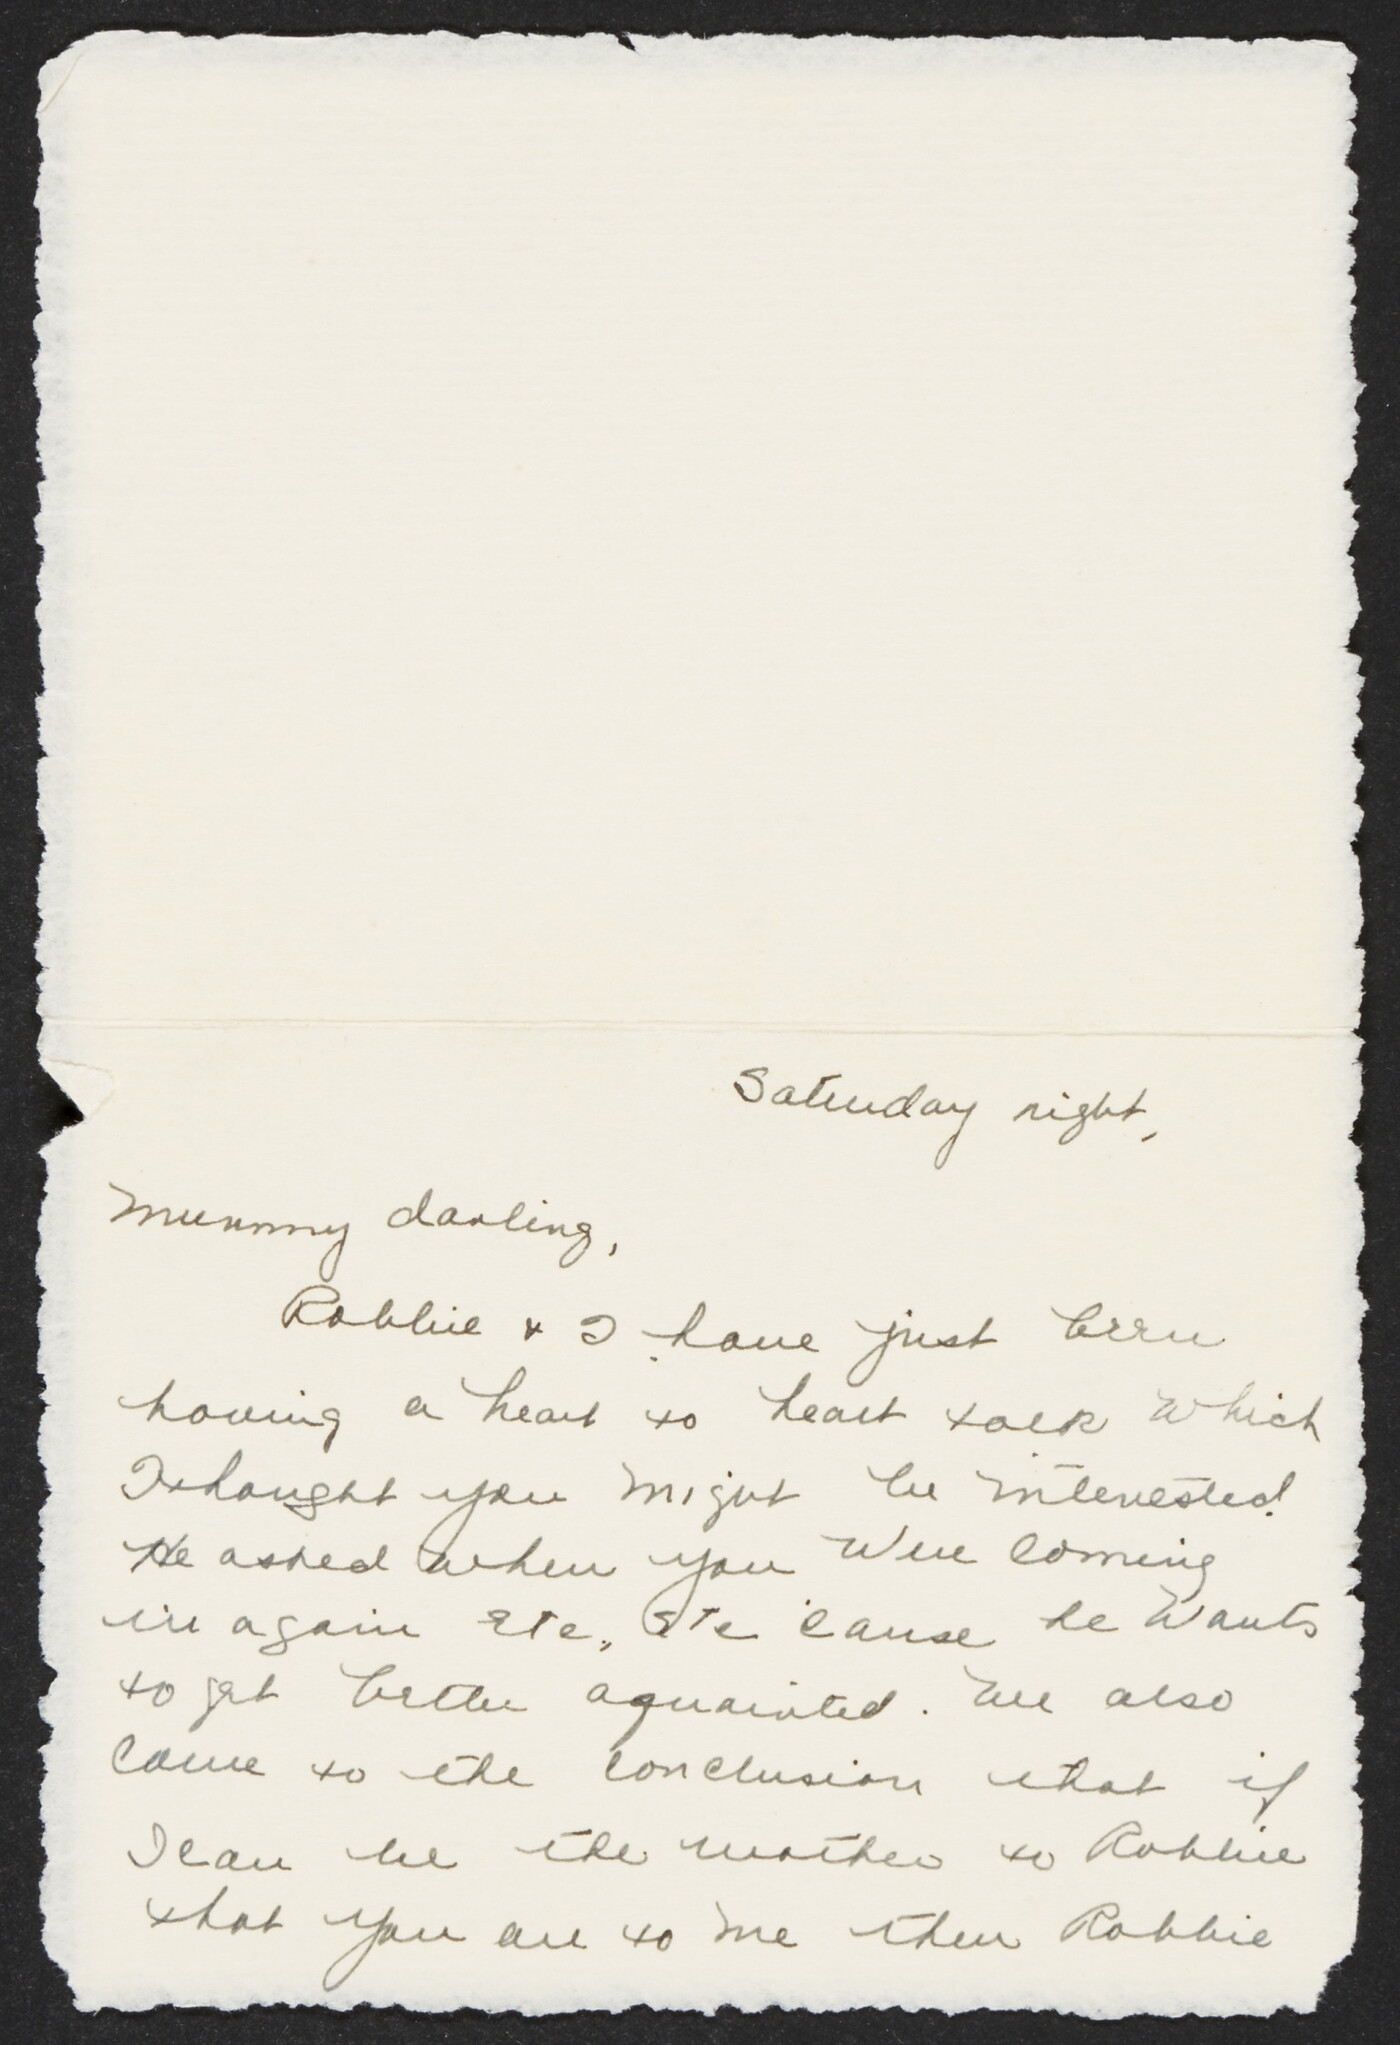 Saturday night,
Mummy darling,
Robbie & I have just been
having a heart to heart talk which
I thought you might be interested.
He asked when you were coming
in again etc., etc 'cause he wants
to get better aquainted. We also
came to the conclusion that if
I can be the mother to Robbie
that you are to me then Robbie